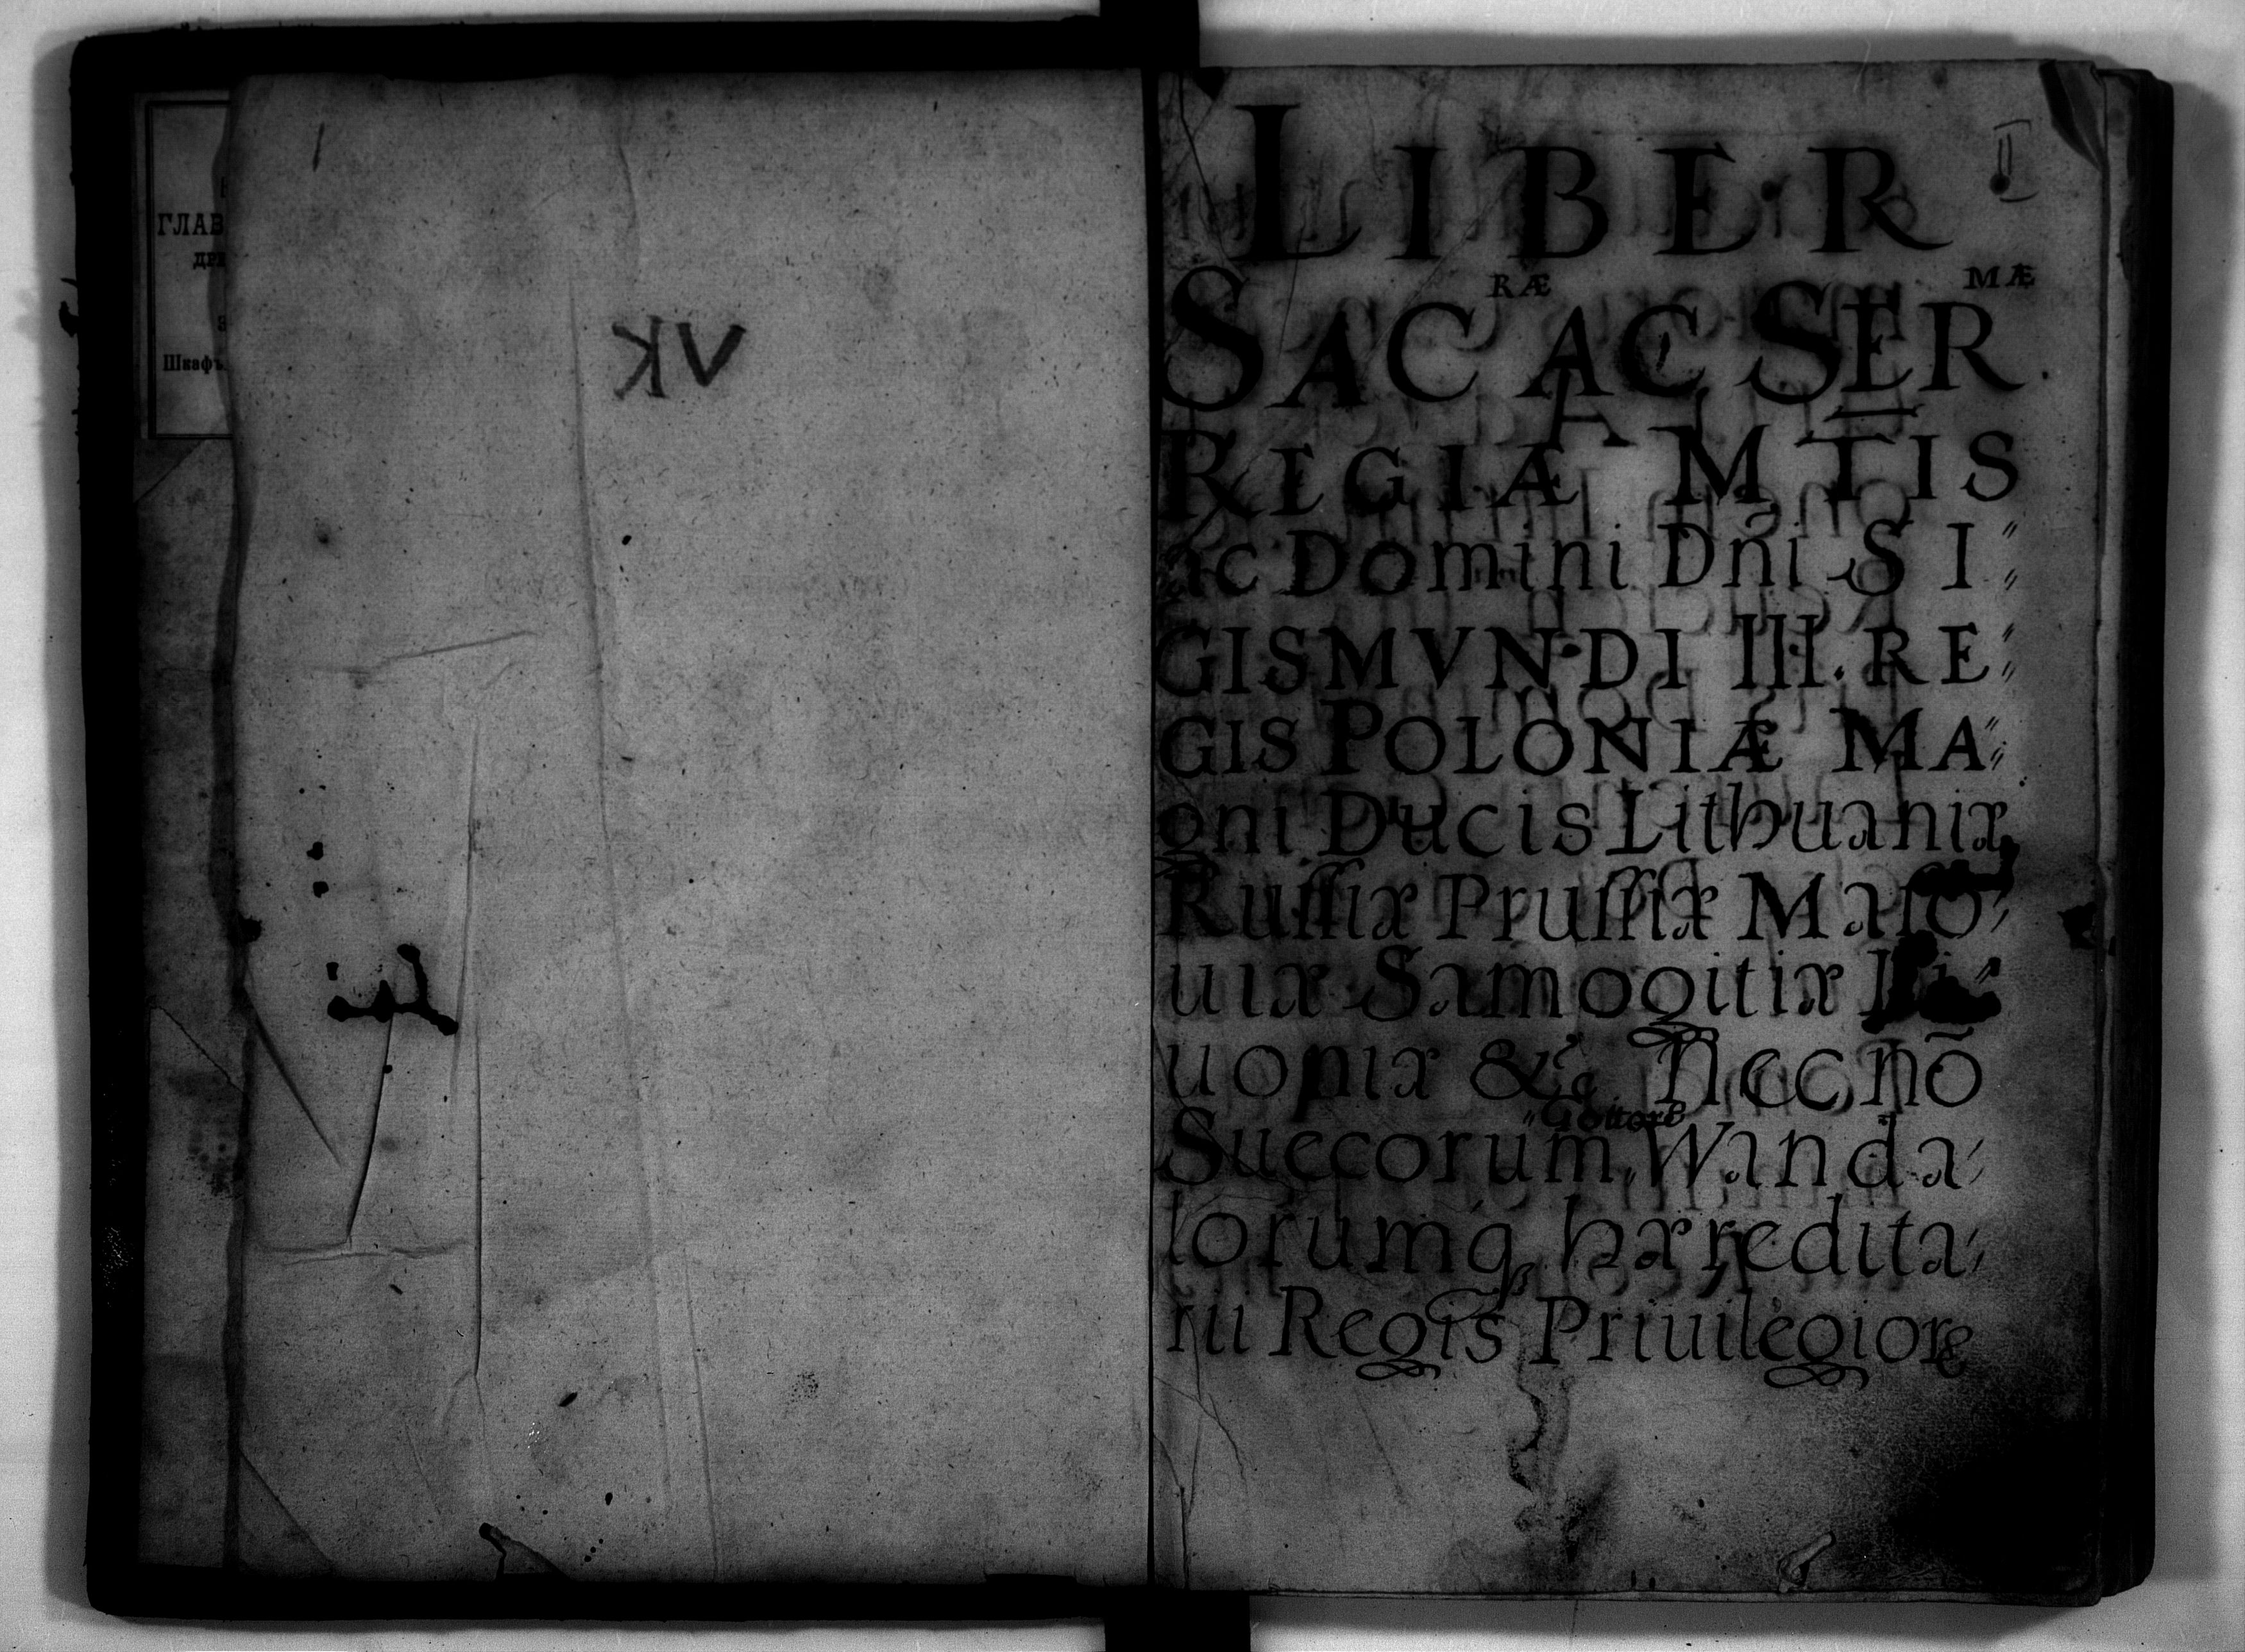 ГЛАВ
Шкафъ
VK
LIBER
SACRÆ AC SERMÆ
REGIÆ MTIS
ac Domini Dñi SI⸗
GISMVNDI III. RE⸗
GIS POLONIÆ MA⸗
gni Ducis Lithuaniæ
Rußiæ Prußiæ Maſo⸗
uiæ Samogitiæ Li⸗
uoniæ &c Necnō
Suecorum Gottorꝝ Wanda⸗
lorumq hæredita⸗
rii Regis Priuilegiorꝝ